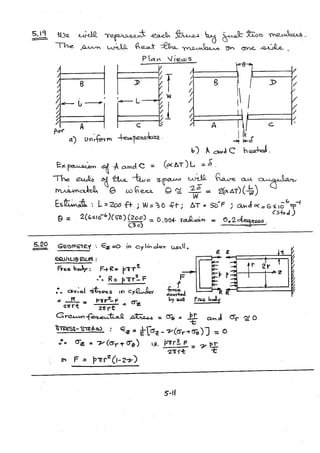 5.19 We will represent each truss by just two members.
The sun will heat the members on one side.
Plan Views
θ
B D B D
L L W
A C A C
per δ
a) Uniform temperature. b) A and C heated.
Expansion of A and C = (α ΔT) L = δ.
The ends of the two spans will have an angular
mismatch θ where θ ≈ 2δ/W = 2(αΔT)(L/W)
Estimate : L = 200 ft ; W = 30 ft ; ΔT = 50°F ; and α = 6×10⁻⁶ °F⁻¹
(steel)
θ = 2(6×10⁻⁶)(50)(200)/(30) = 0.004 radian = 0.2 degrees.
5.20 GEOMETRY : ε_z = 0 in cylinder wall.
EQUILIBRIUM :
Free body : F+R = pπr²
∴ R = pπr² - F
∴ axial stress in cylinder
= R/2πrt = (pπr² - F)/2πrt = σ_z
R R t
F r 2r z
p
force
exerted
by wall Free body
Circumferential stress = σ_θ = pr/t and σ_r ≈ 0
STRESS-STRAIN : ε_z = 1/E [σ_z - ν(σ_r + σ_θ)] = 0
∴ σ_z = ν(σ_r + σ_θ) i.e. (pπr² - F)/2πrt = ν pr/t
or F = pπr²(1-2ν)
5-11